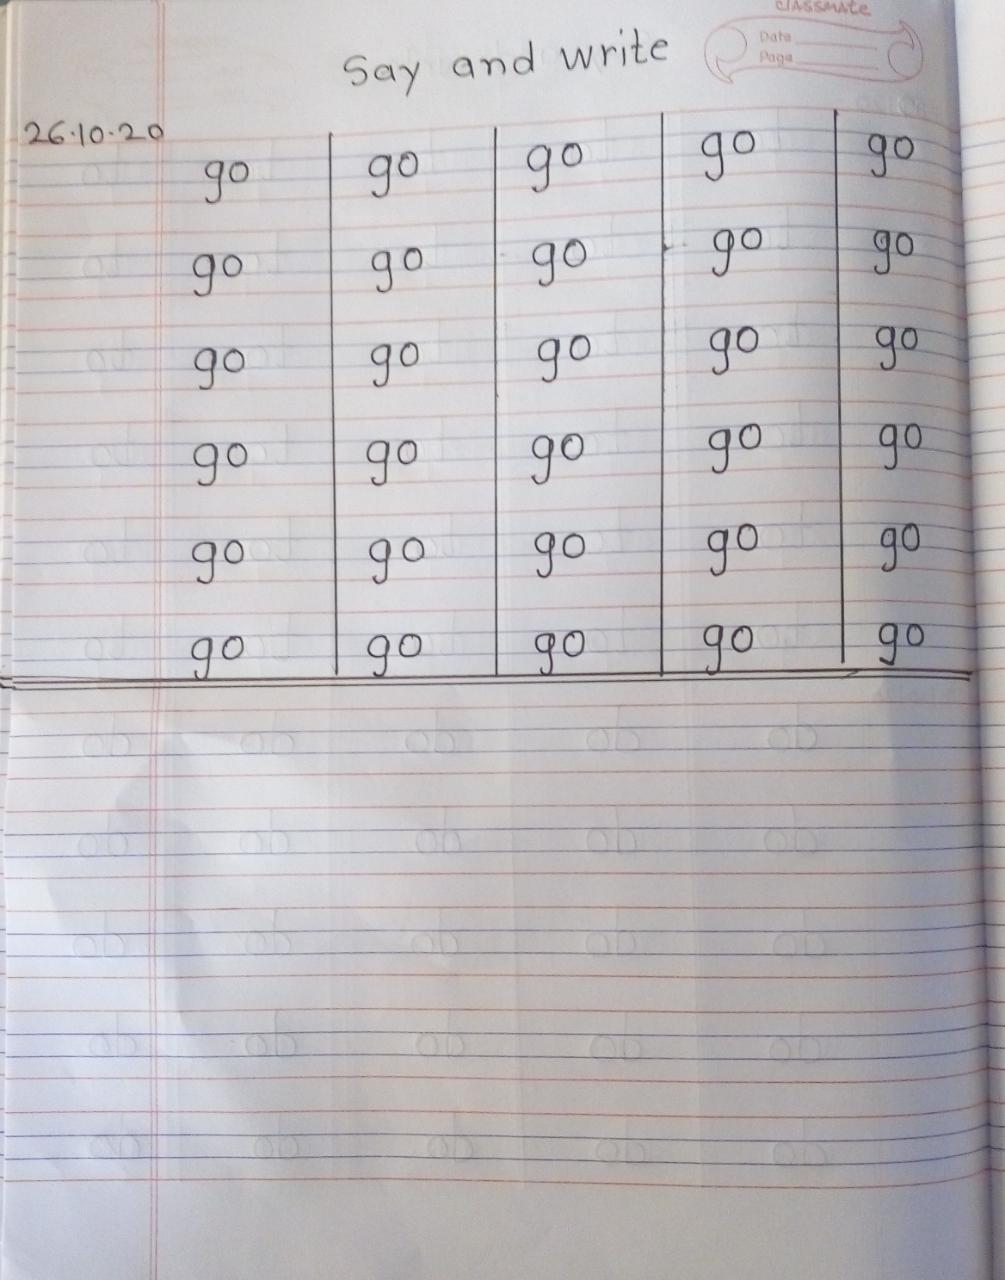 classmate
Date
Page
Say and write
26.10.20
go go go go go
go go go go go
go go go go go
go go go go go
go go go go go
go go go go go